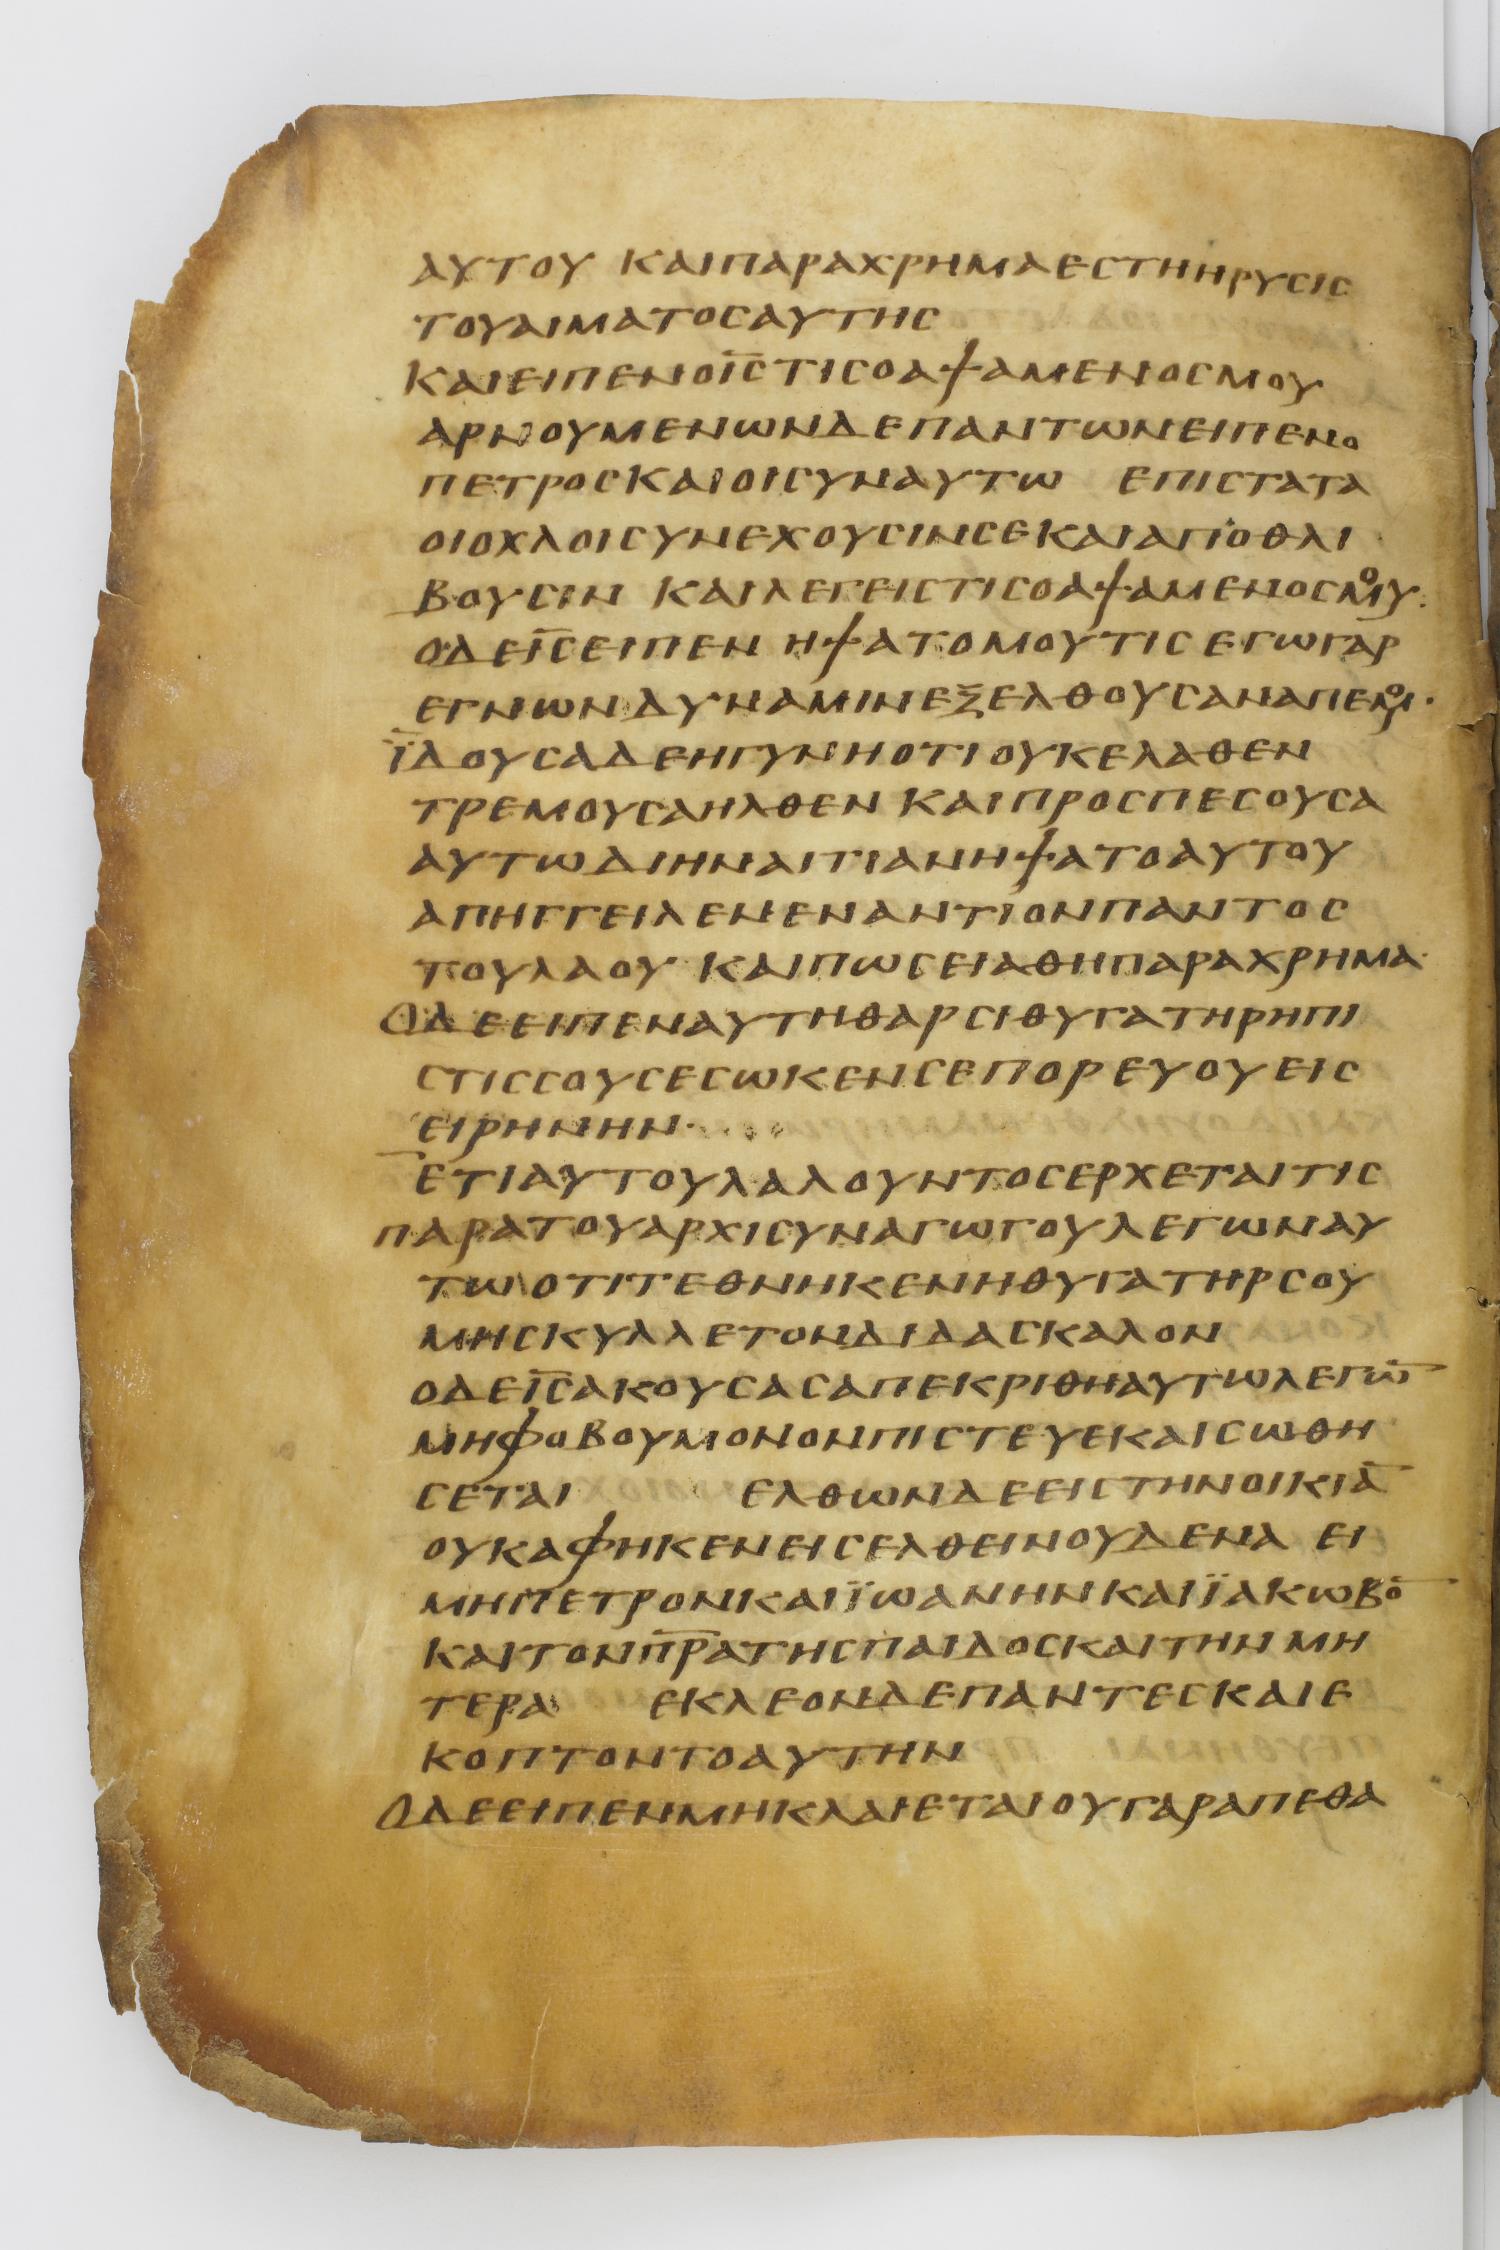 ΑΥΤΟΥ ΚΑΙΠΑΡΑΧΡΗΜΑΕСΤΗΗΡΥСΙС
ΤΟΥΑΙΜΑΤΟСΑΥΤΗС
ΚΑΙΕΙΠΕΝΟΙ̅С̅ΤΙСΟΑΨΑΜΕΝΟСΜΟΥ
ΑΡΝΟΥΜΕΝΩΝΔΕΠΑΝΤΩΝΕΙΠΕΝΟ
ΠΕΤΡΟСΚΑΙΟΙСΥΝΑΥΤΩ ΕΠΙСΤΑΤΑ
ΟΙΟΧΛΟΙСΥΝΕΧΟΥСΙΝСΕΚΑΙΑΠΟΘΛΙ
ΒΟΥСΙΝ ΚΑΙΛΕΓΕΙСΤΙСΟΑΨΑΜΕΝΟСΜΟΥ·
ΟΔΕΙ̅С̅ΕΙΠΕΝ ΗΨΑΤΟΜΟΥΤΙСΕΓΩΓΑΡ
ΕΓΝΩΝΔΥΝΑΜΙΝΕΞΕΛΘΟΥСΑΝΑΠΕΜΟΥ·
ΪΔΟΥСΑΔΕΗΓΥΝΗΟΤΙΟΥΚΕΛΑΘΕΝ
ΤΡΕΜΟΥСΑΗΛΘΕΝ ΚΑΙΠΡΟСΠΕСΟΥСΑ
ΑΥΤΩΔΙΗΝΑΙΤΙΑΝΗΨΑΤΟΑΥΤΟΥ
ΑΠΗΓΓΕΙΛΕΝΕΝΑΝΤΙΟΝΠΑΝΤΟС
ΤΟΥΛΑΟΥ ΚΑΙΠΩСΕΙΑΘΗΠΑΡΑΧΡΗΜΑ·
ΟΔΕΕΙΠΕΝΑΥΤΗΘΑΡСΙΘΥΓΑΤΗΡΗΠΙ
СΤΙССΟΥСΕСΩΚΕΝСΕΠΟΡΕΥΟΥΕΙС
ΕΙΡΗΝΗΝ·
ΕΤΙΑΥΤΟΥΛΑΛΟΥΝΤΟСΕΡΧΕΤΑΙΤΙС
ΠΑΡΑΤΟΥΑΡΧΙСΥΝΑΓΩΓΟΥΛΕΓΩΝΑΥ
ΤΩΟΤΙΤΕΘΝΗΚΕΝΗΘΥΓΑΤΗΡСΟΥ
ΜΗСΚΥΛΛΕΤΟΝΔΙΔΑСΚΑΛΟΝ
ΟΔΕΙ̅С̅ΑΚΟΥСΑСΑΠΕΚΡΙΘΗΑΥΤΩΛΕΓΩ̅
ΜΗΦΟΒΟΥΜΟΝΟΝΠΙСΤΕΥΕΚΑΙСΩΘΗ
СΕΤΑΙ ΕΛΘΩΝΔΕΕΙСΤΗΝΟΙΚΙΑ̅
ΟΥΚΑΦΗΚΕΝΕΙСΕΛΘΕΙΝΟΥΔΕΝΑ ΕΙ
ΜΗΠΕΤΡΟΝΚΑΙΪΩΑΝΗΝΚΑΙΪΑΚΩΒΟ̅
ΚΑΙΤΟΝΠ̅Ρ̅Α̅ΤΗСΠΑΙΔΟСΚΑΙΤΗΝΜΗ
ΤΕΡΑ ΕΚΛΕΟΝΔΕΠΑΝΤΕСΚΑΙΕ
ΚΟΠΤΟΝΤΟΑΥΤΗΝ
ΟΔΕΕΙΠΕΝΜΗΚΛΑΙΕΤΑΙΟΥΓΑΡΑΠΕΘΑ